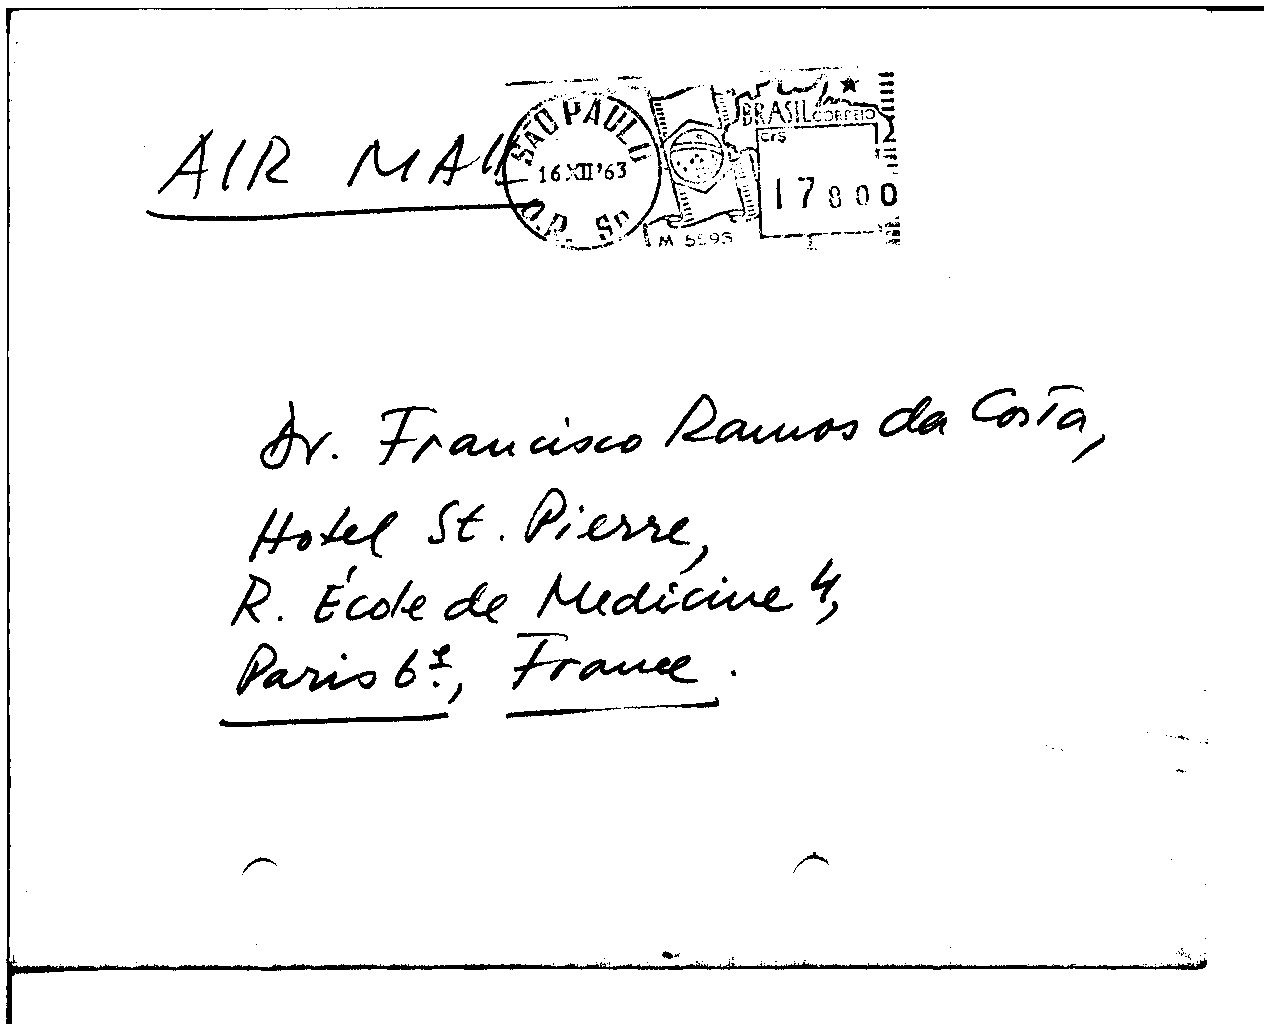 AIR MAIL
SÃO PAULO
16 XII '63
BRASIL CORREIO
CrS
17800
Dr. Francisco Ramos da Costa,
Hotel St. Pierre,
R. École de Medicine 4,
Paris 6e, France.